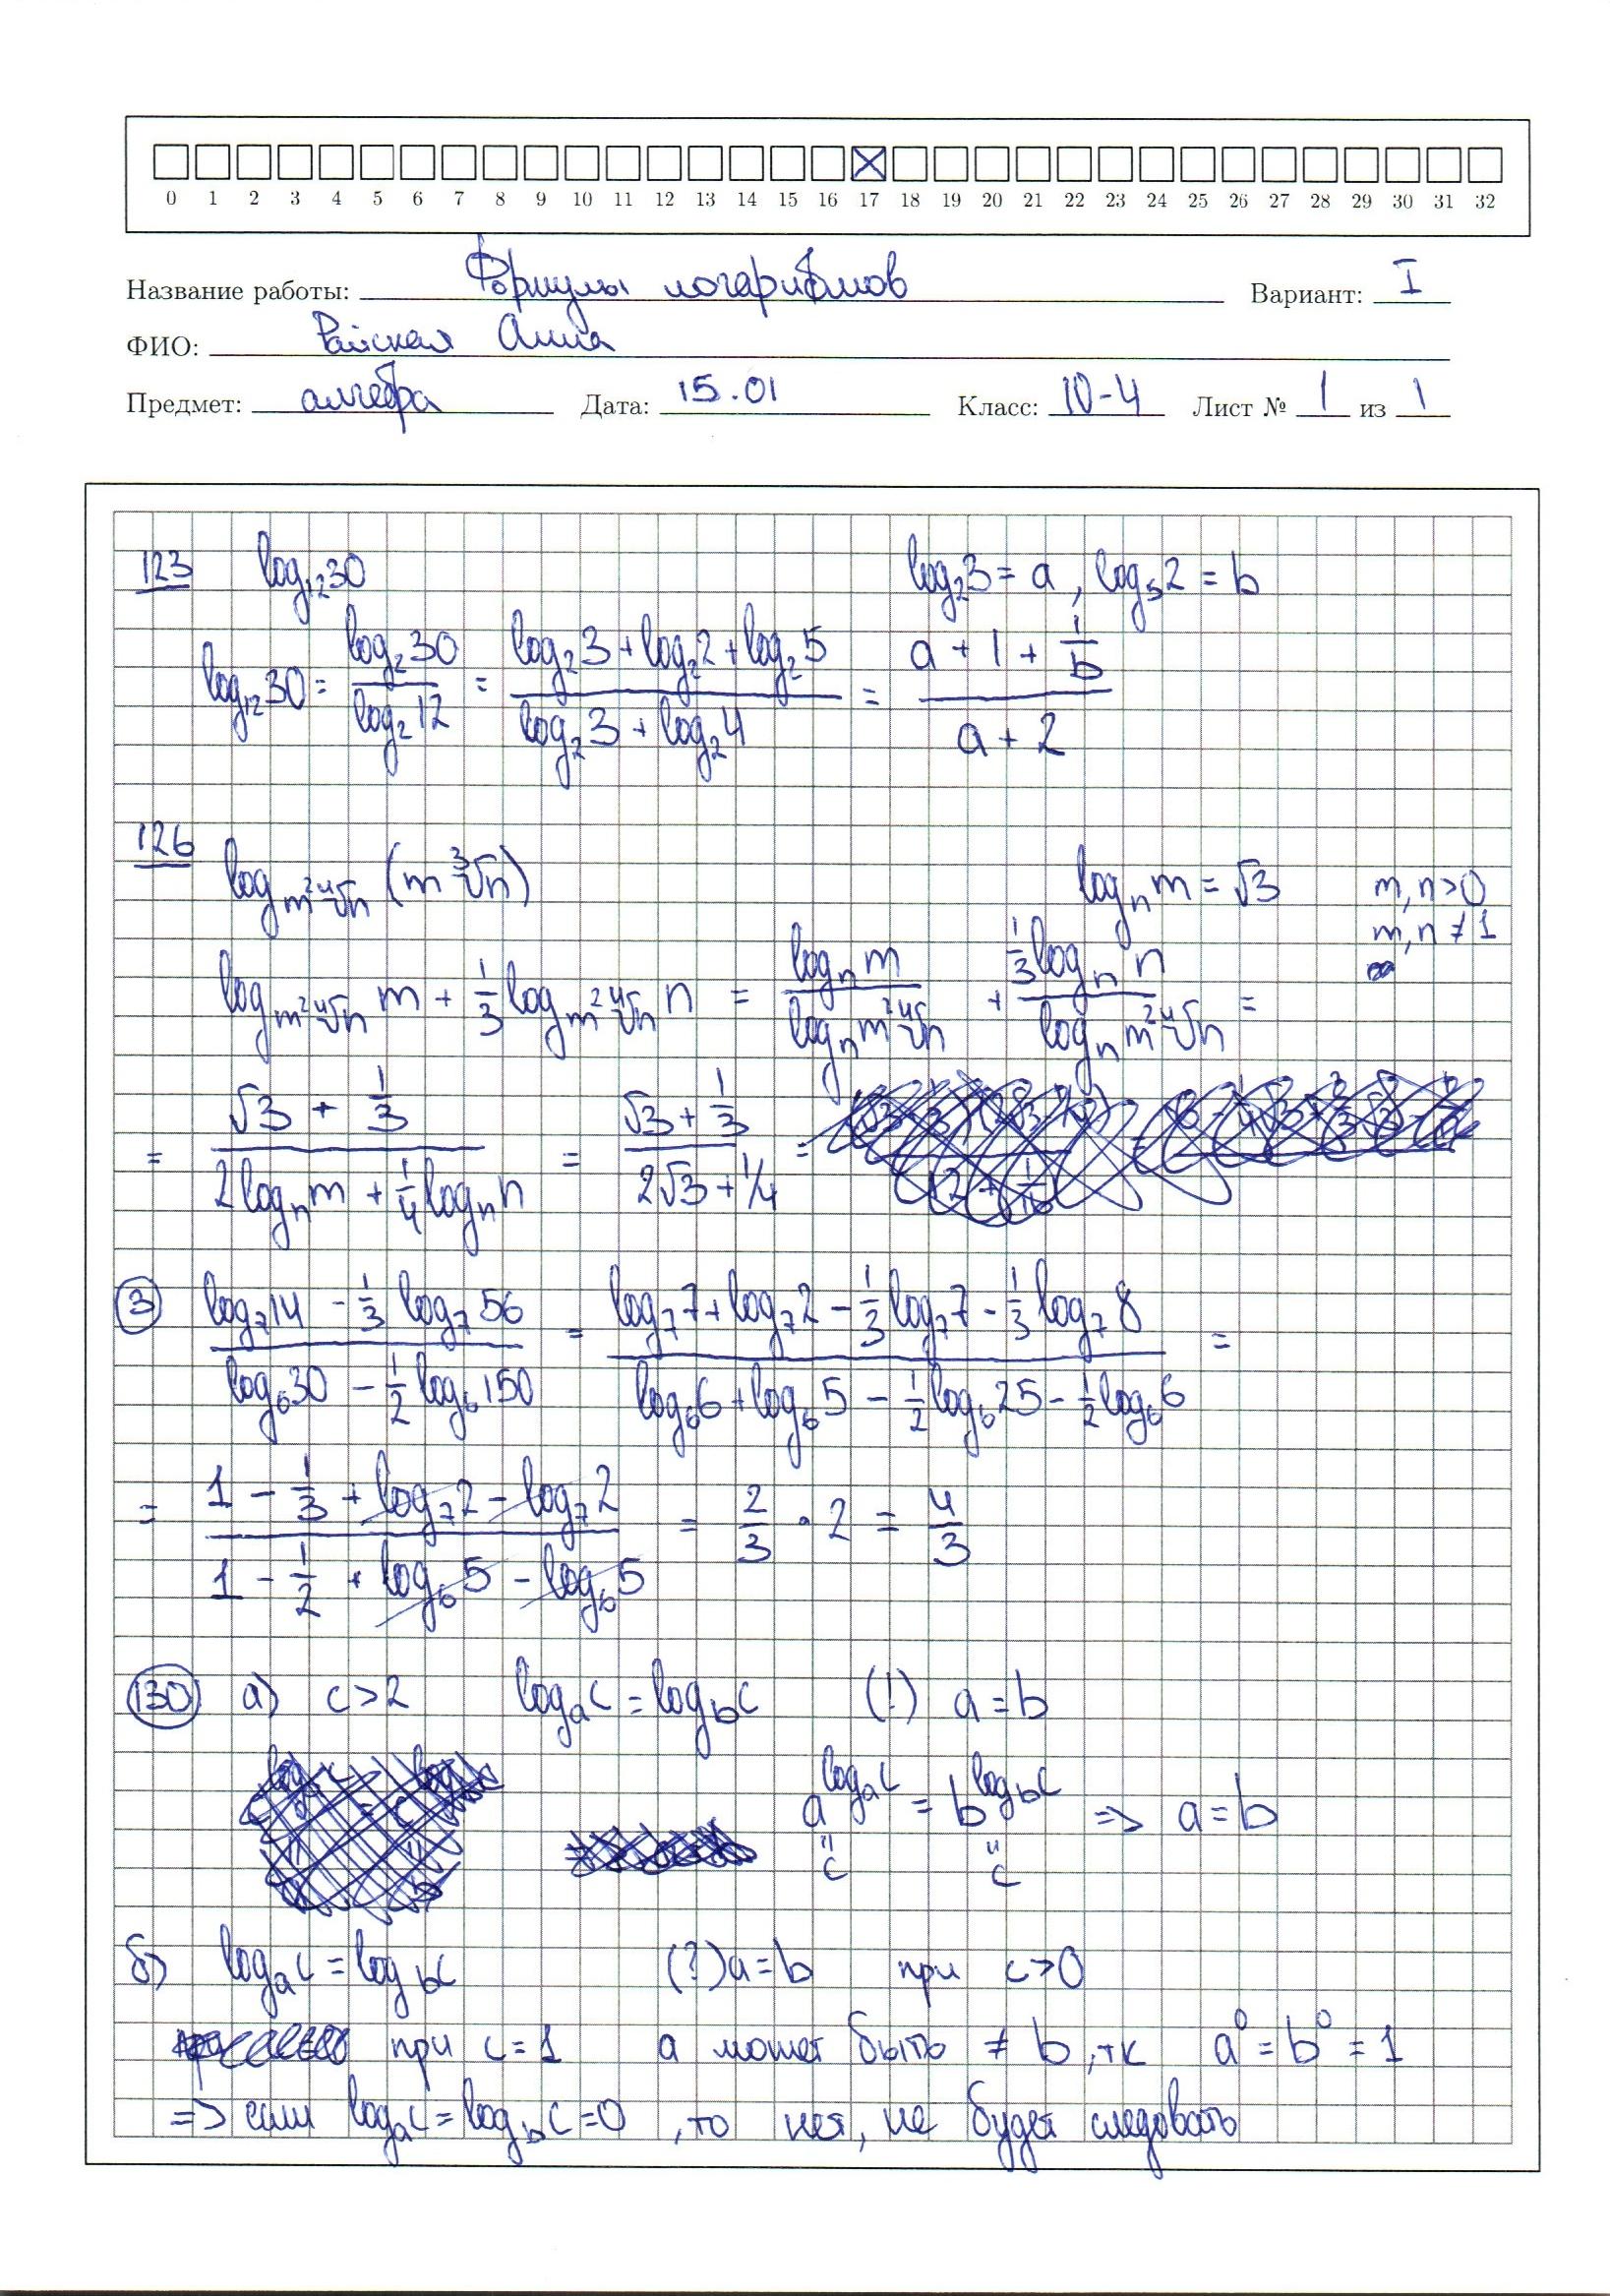 0 1 2 3 4 5 6 7 8 9 10 11 12 13 14 15 16 17 18 19 20 21 22 23 24 25 26 27 28 29 30 31 32
Название работы: Формулы логарифмов Вариант: I
ФИО: Райская Анна
Предмет: алгебра Дата: 15.01 Класс: 10-4 Лист № 1 из 1
123 log₁₂30 log₂3 = a, log₅2 = b
log₁₂30 = log₂30 / log₂12 = (log₂3 + log₂2 + log₂5) / (log₂3 + log₂4) = (a + 1 + 1/b) / (a + 2)
126 log_{m²⁴√n} (m ³√n) logₙm = √3 m, n > 0
m, n ≠ 1
log_{m²⁴√n} m + 1/3 log_{m²⁴√n} n = logₙm / logₙm²⁴√n + 1/3 logₙn / logₙm²⁴√n =
= (√3 + 1/3) / (2logₙm + 1/4 logₙn) = (√3 + 1/3) / (2√3 + 1/4) =
3 (log₇14 - 1/3 log₇56) / (log₆30 - 1/2 log₆150) = (log₇7 + log₇2 - 1/3 log₇7 - 1/3 log₇8) / (log₆6 + log₆5 - 1/2 log₆25 - 1/2 log₆6) =
= (1 - 1/3 + log₇2 - log₇2) / (1 - 1/2 + log₆5 - log₆5) = 2/3 · 2 = 4/3
130 а) c > 2 logₐc = log_b c (!) a = b
a^{logₐc} = b^{log_b c} => a = b
" "
c c
б) logₐc = log_b c (?) a = b при c > 0
при c = 1 a может быть ≠ b, тк a⁰ = b⁰ = 1
=> если logₐc = log_b c = 0, то нет, не будет следовать